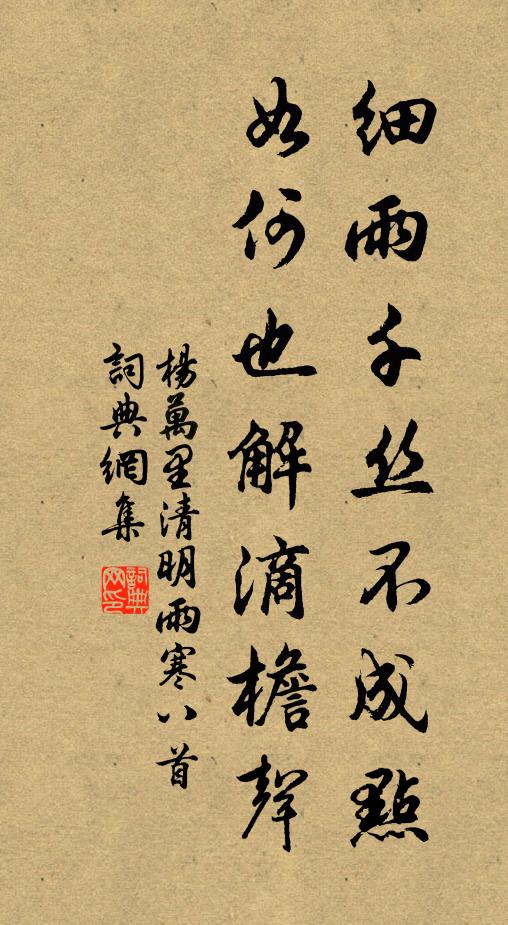 細雨千丝不成點
如何也解滴檐聲
楊萬里清明雨寒八首
詞典網集
詞典
网印